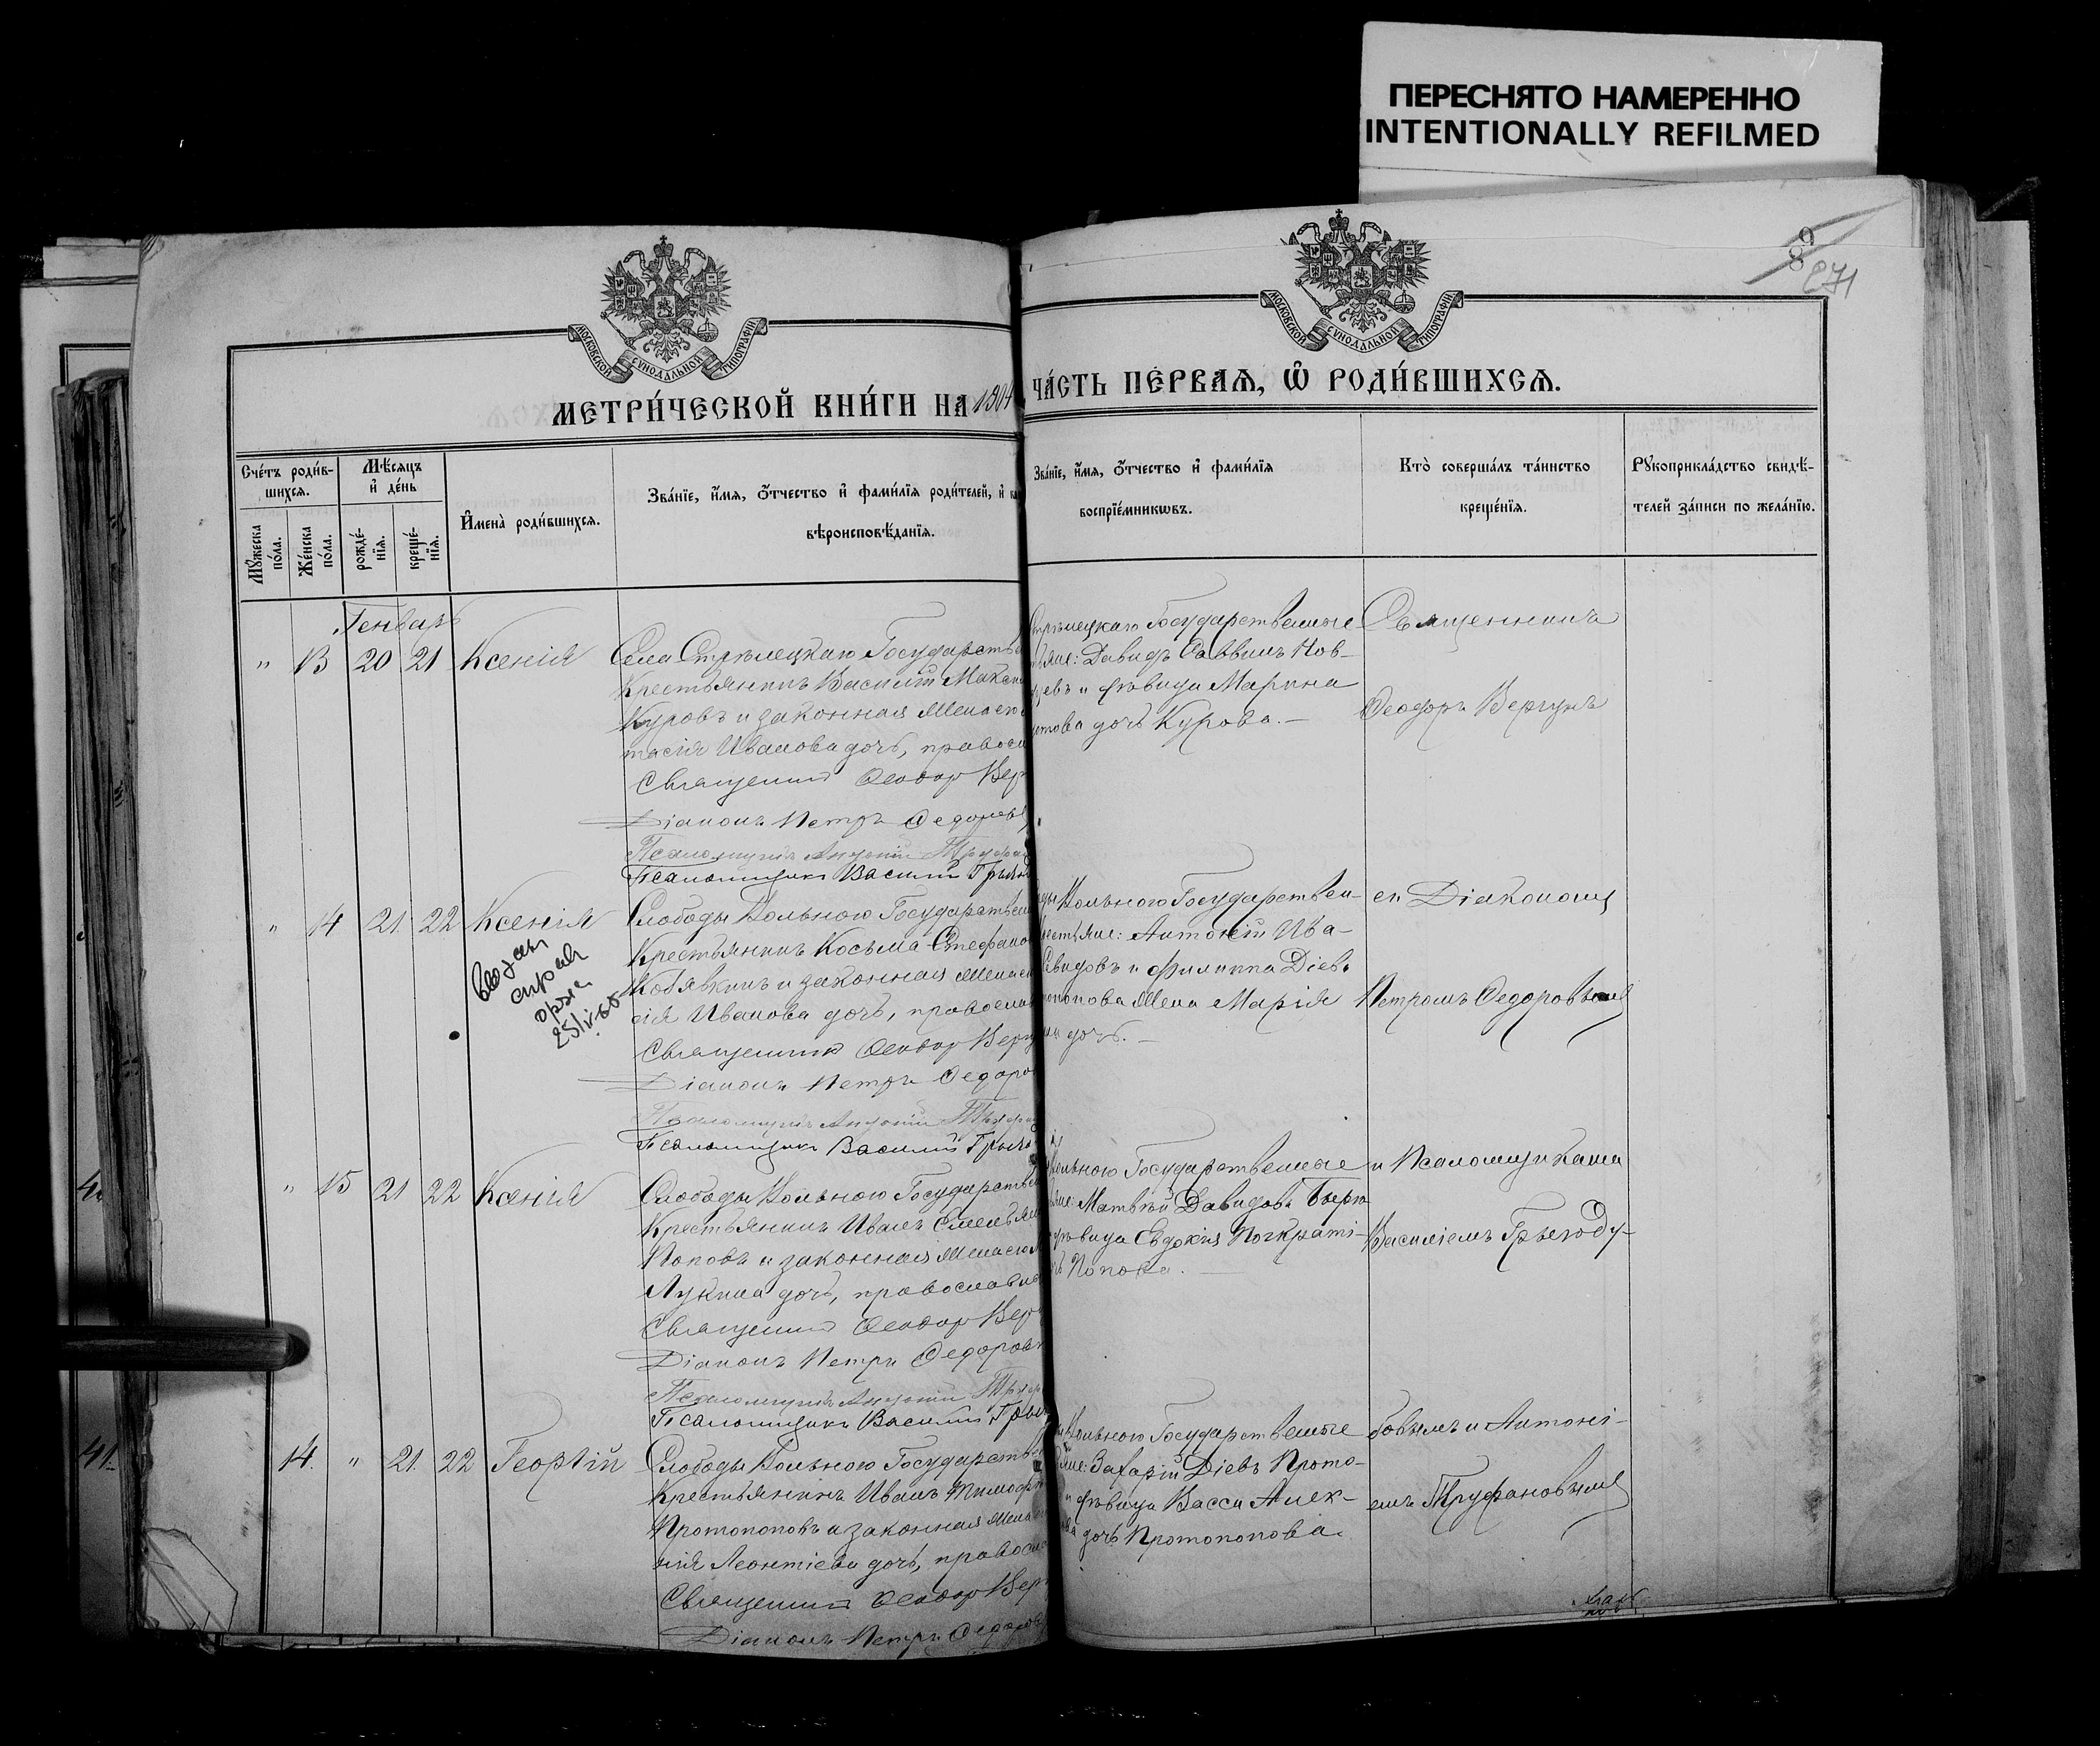 ПЕРЕСНЯТО НАМЕРЕННО
INTENTIONALLY REFILMED
8
271
МОСКОВСКОЙ СУНОДАЛЬНОЙ ТИПОГРАФІИ
МОСКОВСКОЙ СУНОДАЛЬНОЙ ТИПОГРАФІИ
МЕТРИ́ЧЕСКОЙ КНИ́ГИ НА 1904
ЧА́СТЬ ПЕ́РВАЯ, Ѽ РОДИ́ВШИХСЯ.
Сче́тъ роди́в-
шихся.
Мѣ́сяцъ
и҆ де́нь
Мꙋ́жеска по́ла.
Же́нска по́ла.
рожде́-
нїя.
креще́-
нїя.
И҆мена̀ роди́вшихся.
Зва́нїе, и҆́мя, ѻ҆́тчество и҆ фами́лїя роди́телей, и҆
вѣроисповѣ́данїя.
Зва́нїе, и҆́мя, ѻ҆́тчество и҆ фами́лїя
воспрїе́мникѡвъ.
Кто̀ соверша́лъ та́инство
креще́нїя.
Рꙋкоприкла́дство свидѣ́-
телей за́писи по жела́нїю.
Генварь
" 13 20 21 Ксенія
Села Стрѣлецкаго Государств
Крестьянинъ Василій Макси
Куровъ и законная жена его
тасія Иванова дочь, правосл
Священникъ Ѳеодор Вер
Діаконъ Петръ Ѳедоровъ
Псаломщикъ Антоній Труфан
Псаломщикъ Василій Грыз
Стрѣлецкаго Государственные
тьяне: Давидъ Саввинъ Нов-
ревъ и дѣвица Марина
това дочь Курова.—
Священникъ
Ѳеодоръ Вергунъ
" 14 21 22 Ксенія
25/IV-66
Слободы Вольною Государствен
Крестьянинъ Косьма Стефано
Кобякинъ и законная жена его
сія Иванова дочь, правосла
Священникъ Ѳеодор Верг
Діаконъ Петръ Ѳедоро
Псаломщикъ Антоній Труфан
Псаломщикъ Василій Грыз
ды Вольного Государствен-
рестьяне: Антоній Ива-
Свидовъ и Филиппа Діев
топопова жена Марія
на дочь.—
съ Діакономъ
Петромъ Ѳедоровымъ
" 15 21 22 Ксенія
Слободы Вольною Государствен
Крестьянинъ Иванъ Емельян
Поповъ и законная жена его
Лукина дочь, православн
Священникъ Ѳеодор Верг
Діаконъ Петръ Ѳедоровъ
Псаломщикъ Антоній Труф
Псаломщикъ Василій Грыз
Вольною Государственные
яне: Матвѣй Давидовъ Бирю
дѣвица Евдокія Пократі-
чь Попова.—
и Псаломщиками
Василіемъ Грызоду-
14. " 21. 22 Георгій
Слободы Вольною Государств
Крестьянинъ Иванъ Тимофе
Протопоповъ и законная жена
нія Леонтіева дочь, правосла
Священникъ Ѳеодор Вер
Діаконъ Петръ Ѳедоров
Вольною Государственные
яне: Захарій Діевъ Прото-
и дѣвица Васса Алек-
ва дочь Протопопова.
бовымъ и Антоні-
емъ Труфановымъ
41.